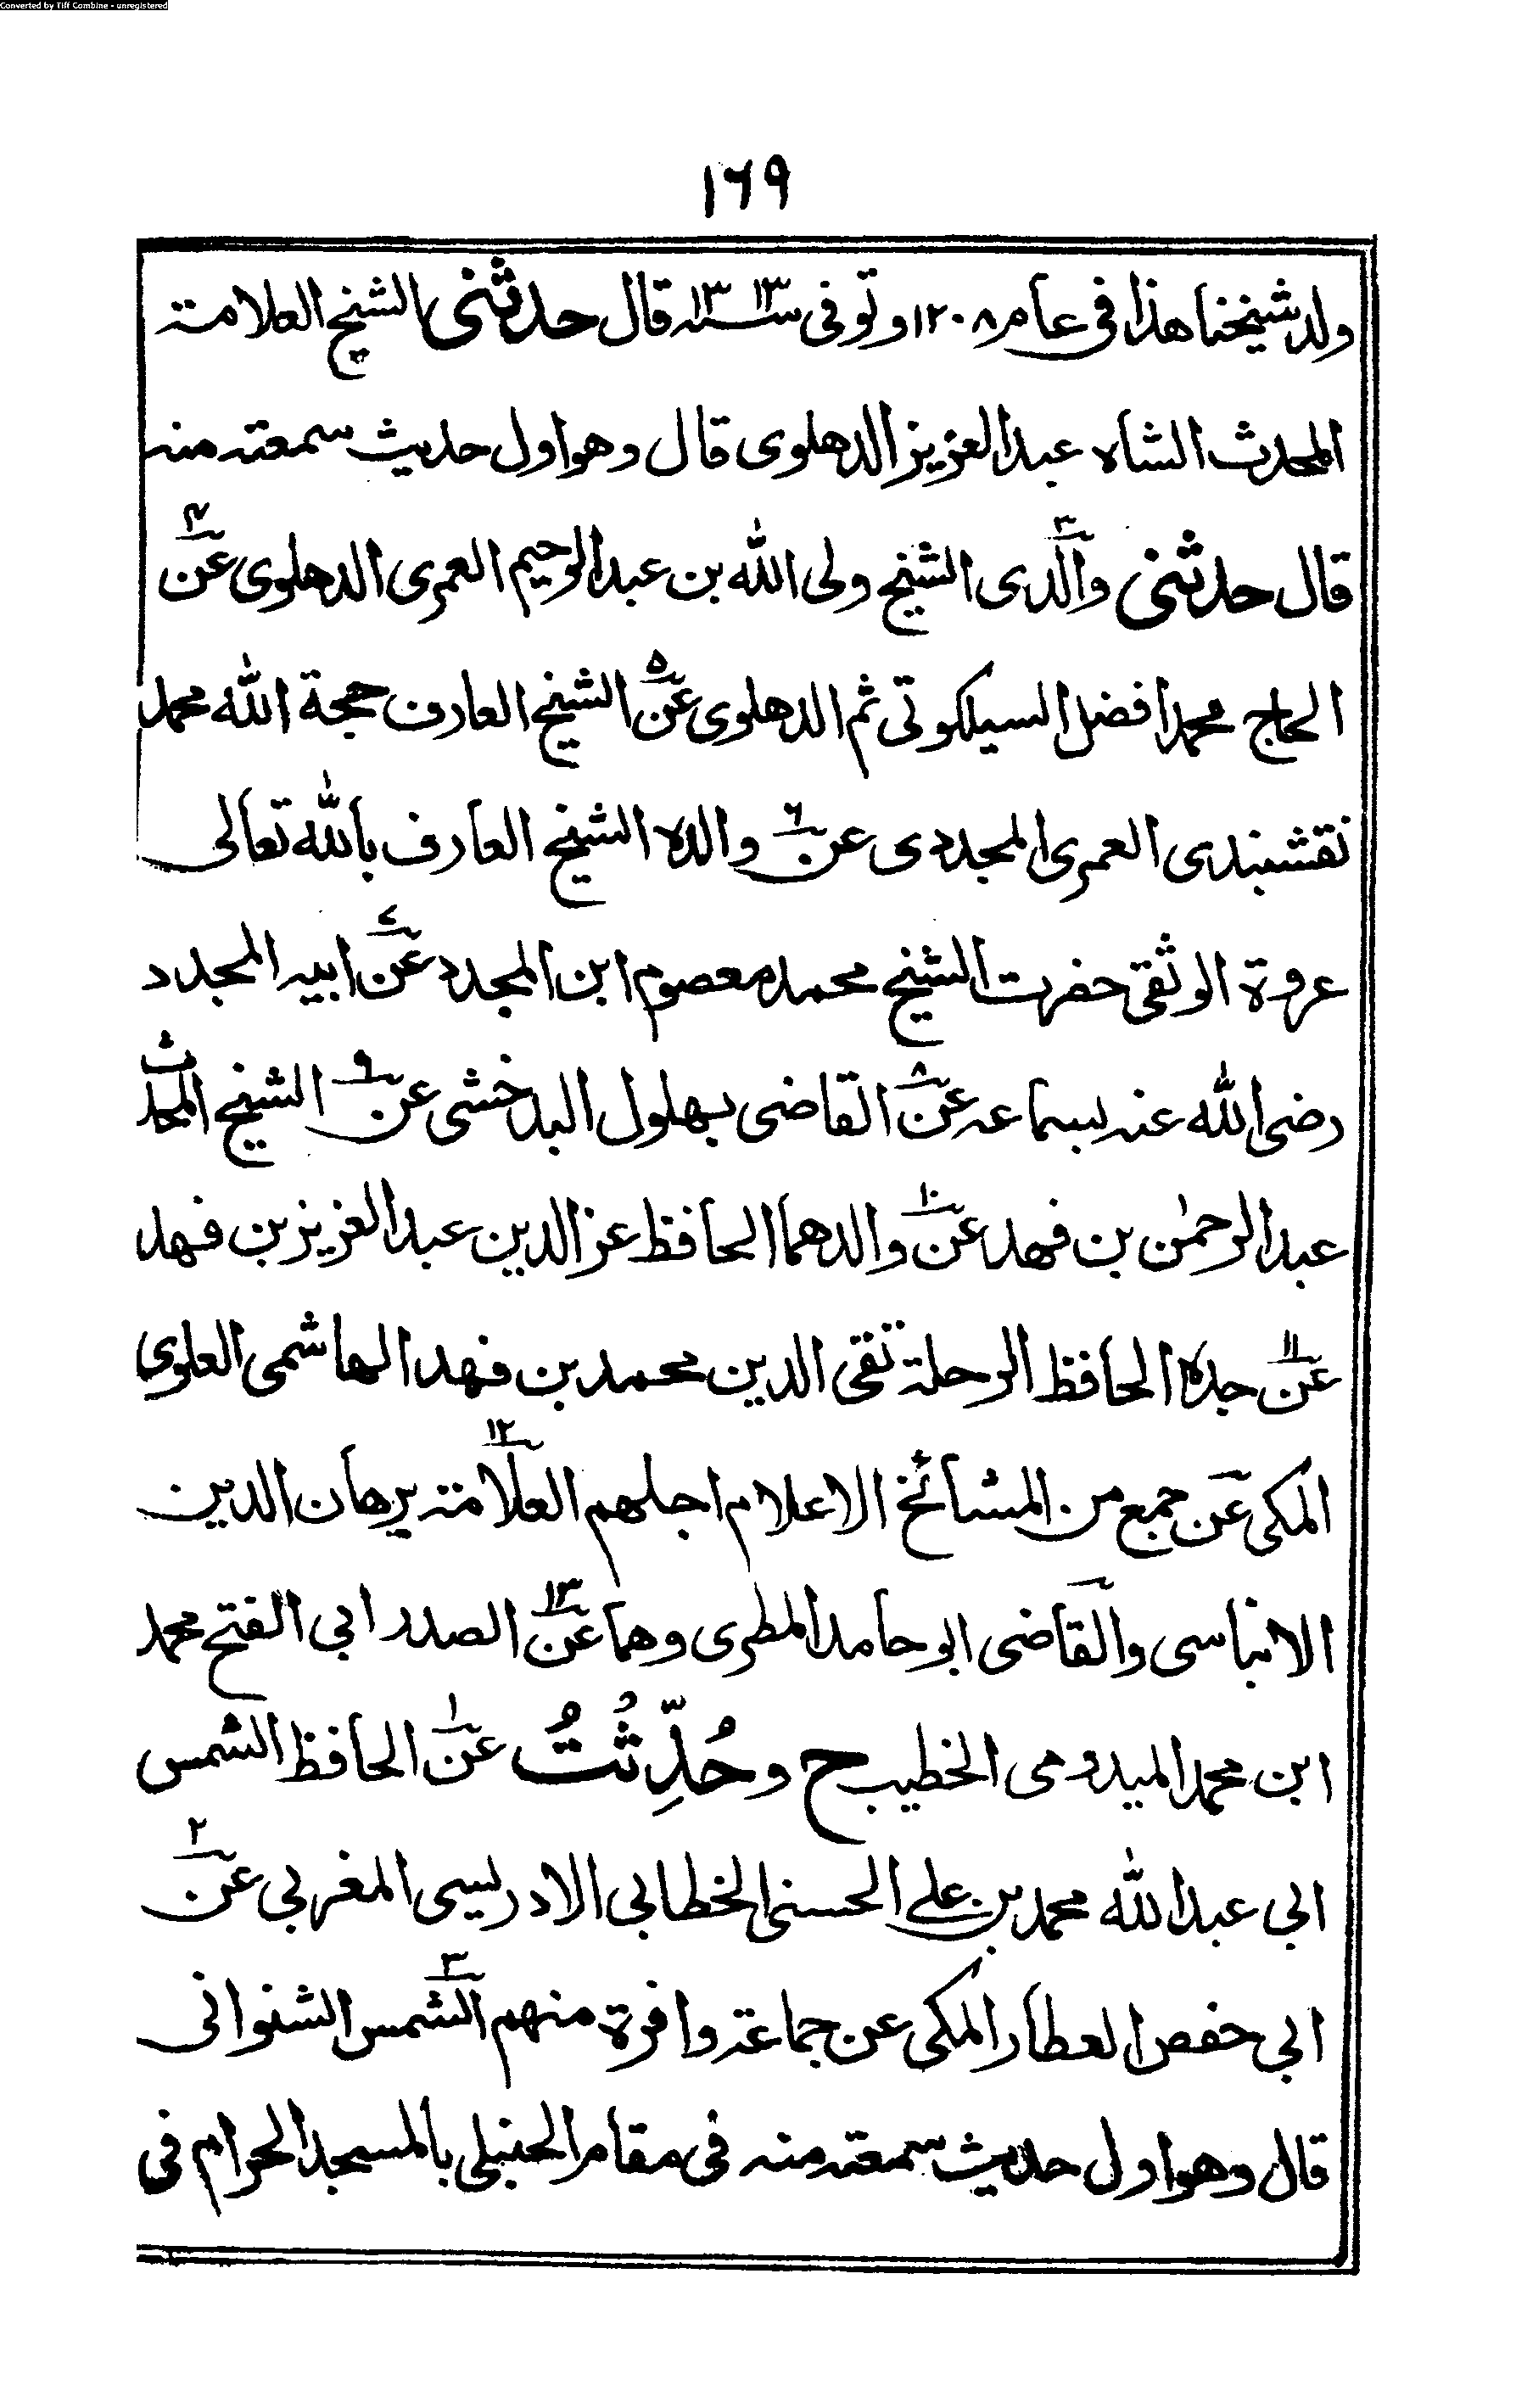 Converted by Tiff Combine - unregistered
١٦٩
ولد شيخنا هذا في عام ١٢٠٨ وتوفي سنة ١٣١٣ قال حدثني الشيخ العلامة
المحدث الشاه عبد العزيز الدهلوى قال وهو اول حديث سمعته منه
قال حدثني والدى الشيخ ولى الله بن عبد الرحيم العمرى الدهلوى عن ٤
الحاج محمد افضل السيلكوتى ثم الدهلوى عن ٥ الشيخ العارف حجة الله محمد
نقشبندى العمرى المجددى عن ٦ والده الشيخ العارف بالله تعالى
عروة الوثقى حضرت الشيخ محمد معصوم ابن المجدد عن ٧ ابيه المجدد
رضى الله عنه بسماعه عن ٨ القاضى بهلول البدخشى عن ٩ الشيخ المحدث
عبد الرحمٰن بن فهد عن ١٠ والدهما الحافظ عز الدين عبد العزيز بن فهد
عن ١١ جده الحافظ الرحلة تقى الدين محمد بن فهد الهاشمى العلوى
المكى عن جمع من المشائخ الاعلام اجلهم ١٢ العلامة برهان الدين
الانباسى والقاضى ابو حامد المطرى وهما عن ١٣ الصدر ابى الفتح محمد
ابن محمد الميدومى الخطيب ح وحُدِّثتُ عن ١ الحافظ الشمس
ابى عبد الله محمد بن على الحسنى الخطابى الادريسى المغربى عن ٢
ابى حفص العطار المكى عن جماعة وافرة منهم ٣ الشمس الشنوانى
قال وهو اول حديث سمعته منه فى مقام الحنبلى بالمسجد الحرام فى